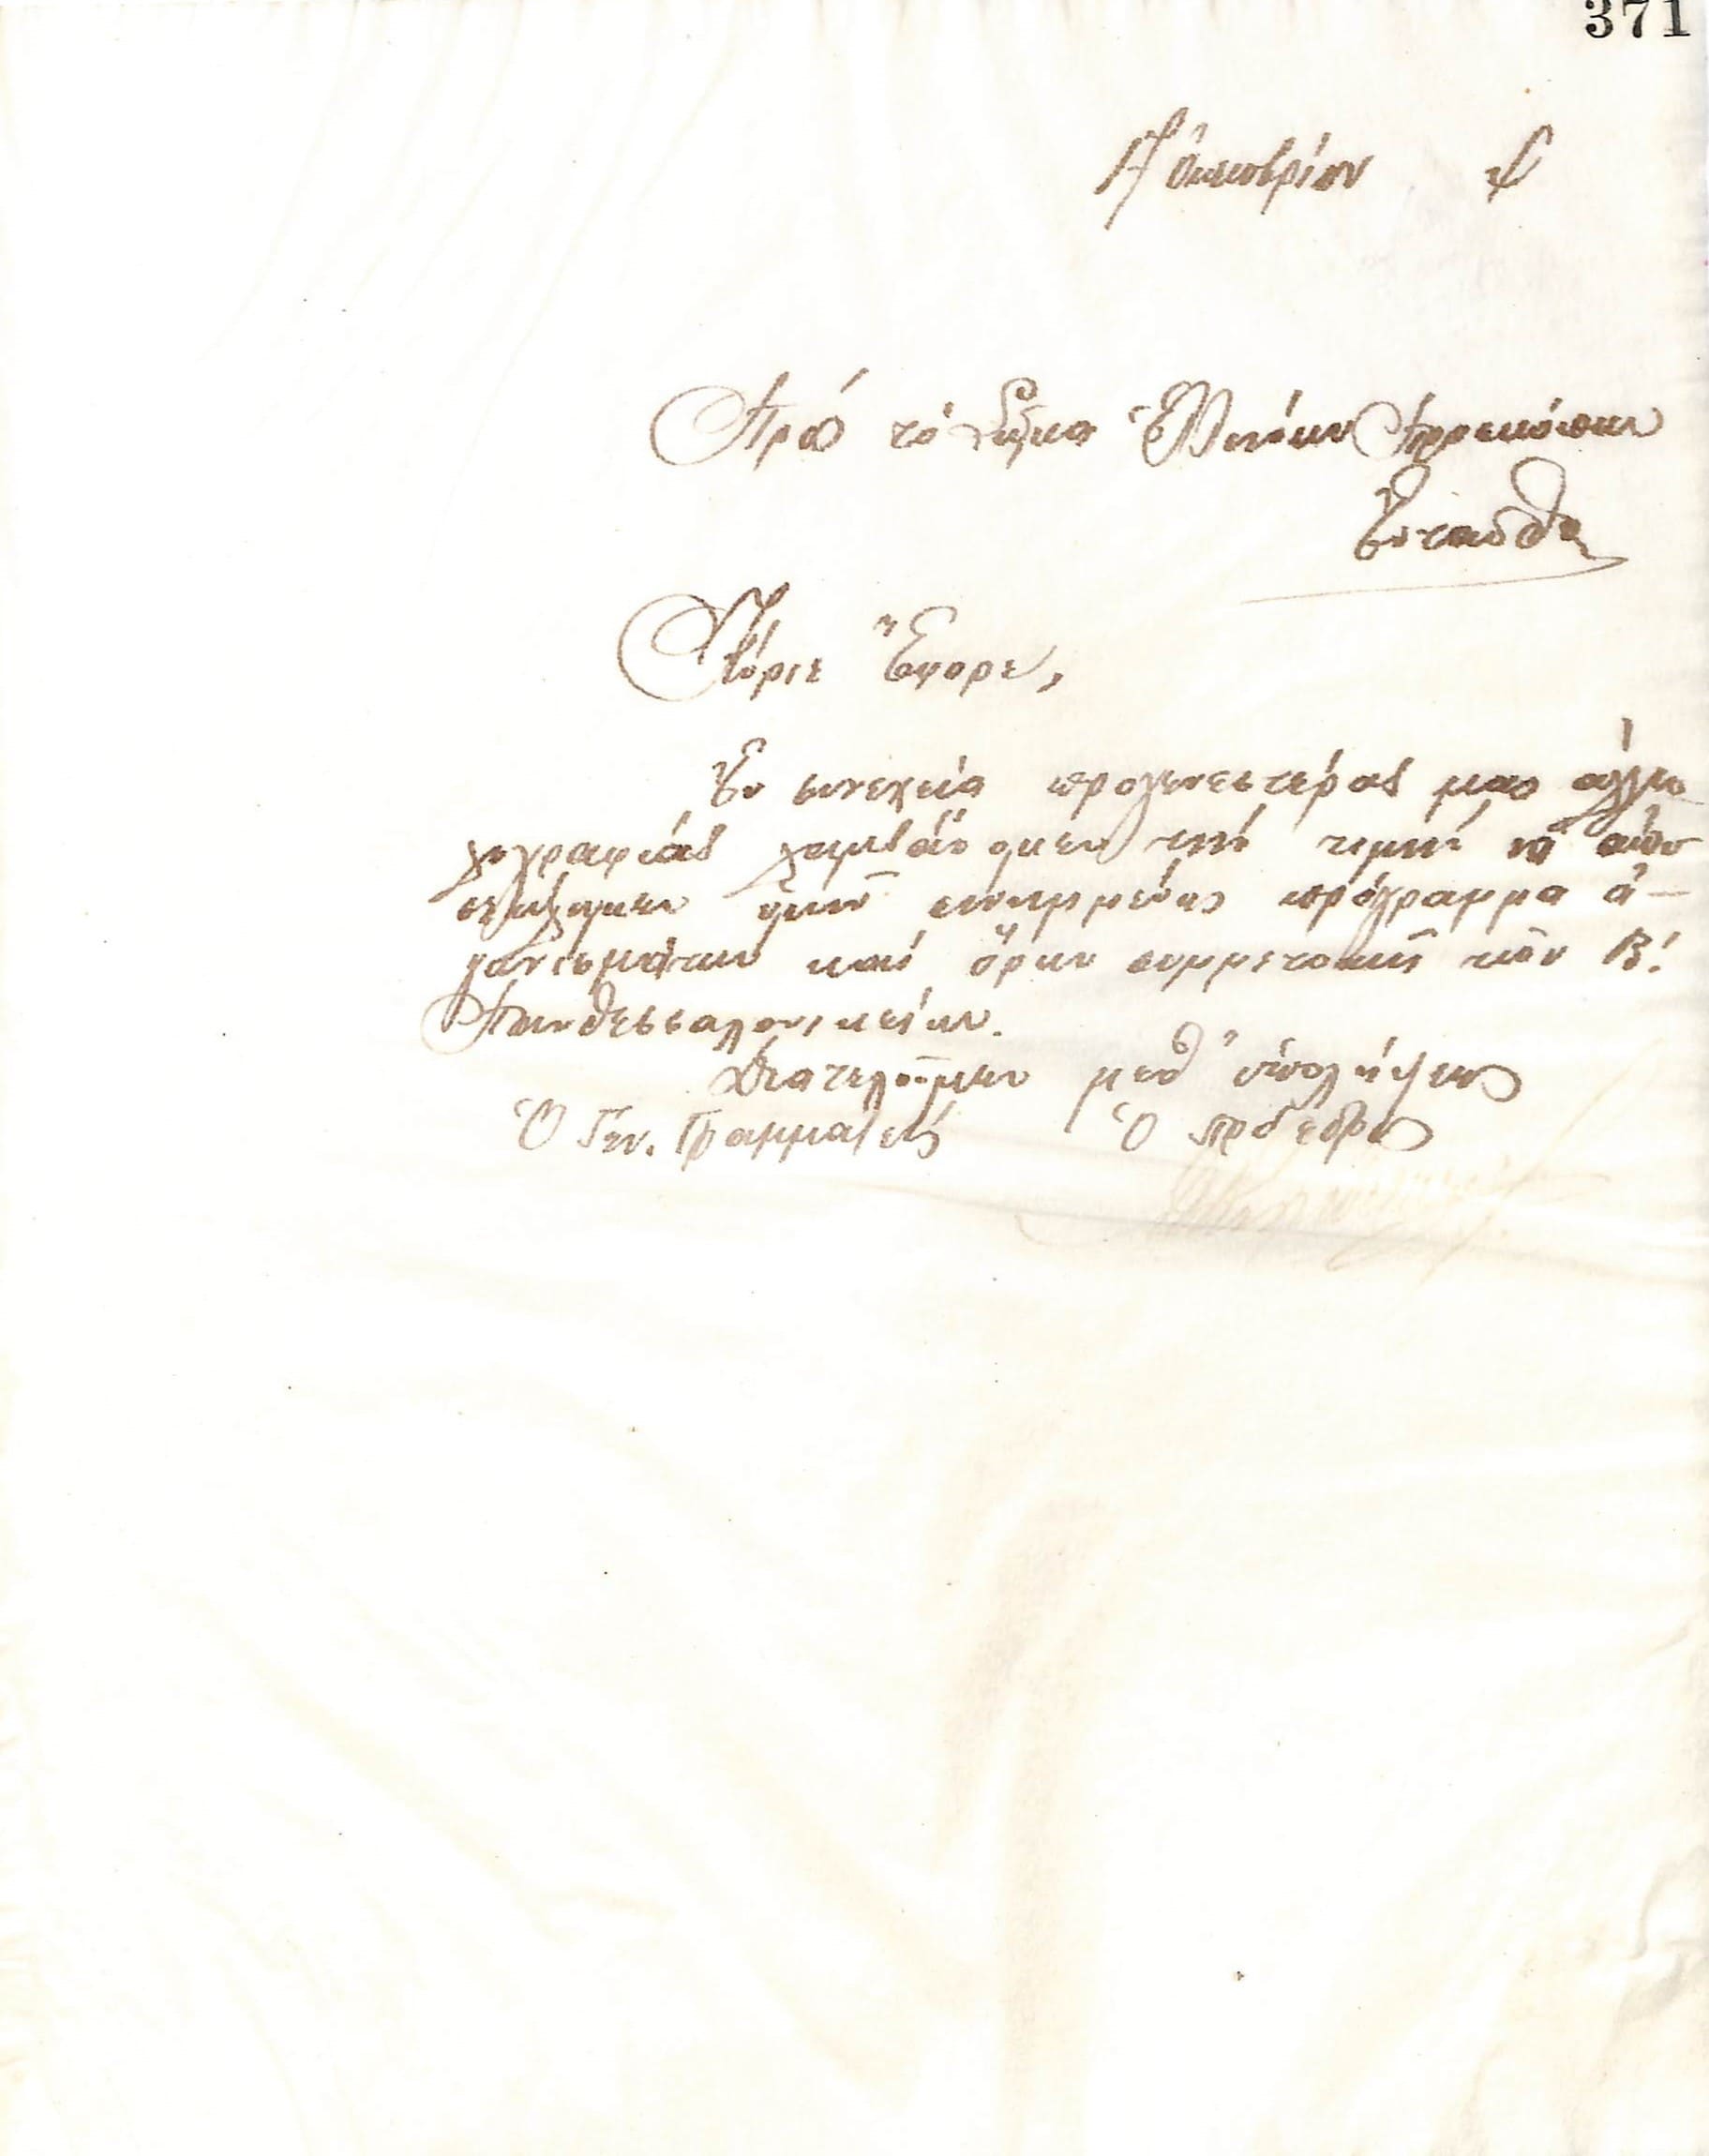 371
17 Ὀκτωβρίου
Πρὸς τὸ Σῶμα Ἑλλήνων Προσκόπων
Ἐνταῦθα
Κύριε Ἔφορε,
Ἐν συνεχείᾳ προγενεστέρας μας ἀλλη
λογραφίας λαμβάνομεν τὴν τιμὴν νὰ ἀπο
στείλωμεν ὑμῖν συνημμένως πρόγραμμα ἀ-
γωνισμάτων καὶ ὅρων συμμετοχῆς τῶν Β!
Πανθεσσαλονικείων.
Διατελοῦμεν μεθ' ὑπολήψεως
Ὁ Γεν. Γραμματεὺς Ὁ Πρόεδρος